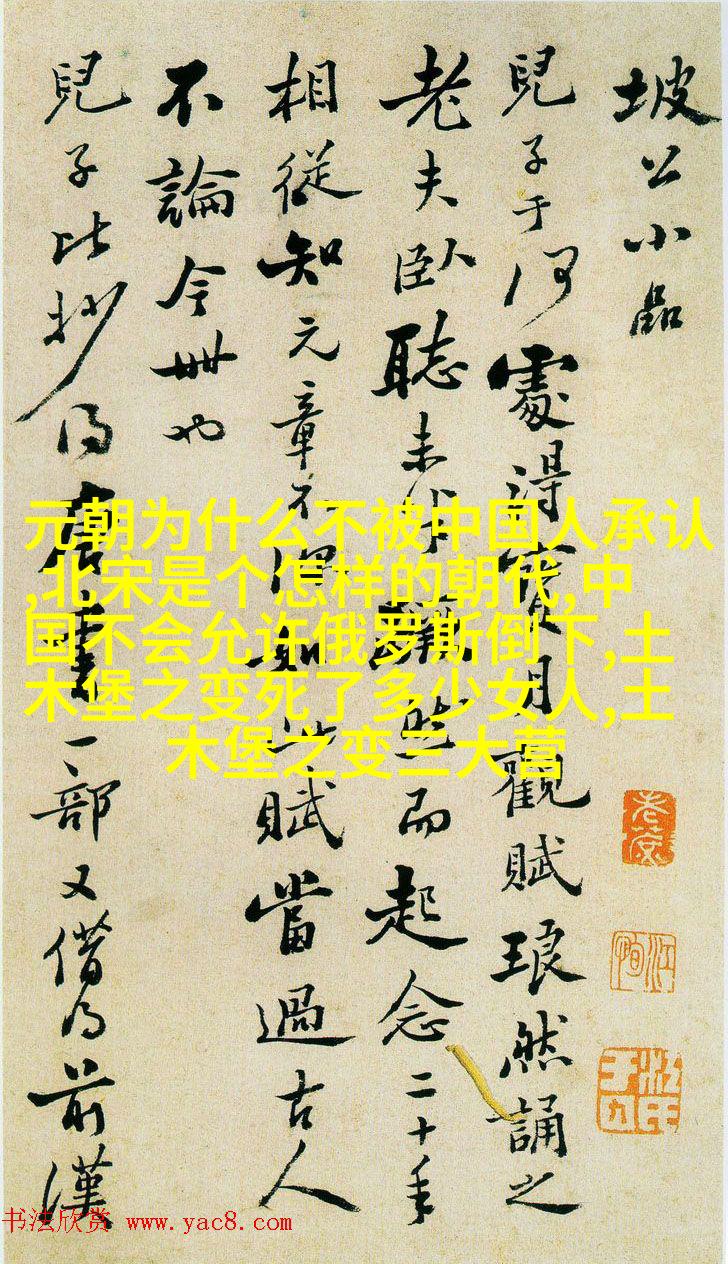 坡公小品
兒子于何處得寶月觀賦琅然誦之
老夫臥聽未半躍然而起念二十年
相從知元章不如此賦當過古人
不論今世也
兒子比抄得唐書一部又借得前漢
元朝为什么不被中国人承认
,北宋是个怎样的朝代,中
国不会允许俄罗斯倒下,土
木堡之变死了多少女人,土
木堡之变三大营
书法欣赏 www.yac8.com